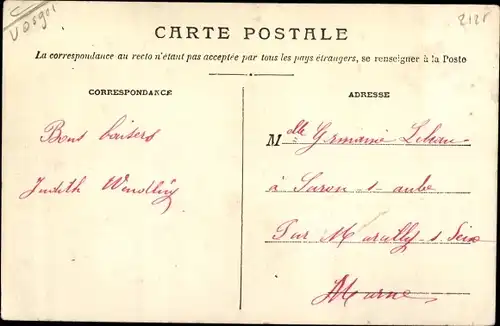 Vosges
2128
CARTE POSTALE
La correspondance au recto n'étant pas acceptée par tous les pays étrangers, se renseigner à la Poste
CORRESPONDANCE
ADRESSE
Bons baisers
Judith
Mlle Germaine
à Saron-s-aube
Par Marcilly-s-Seine
Marne